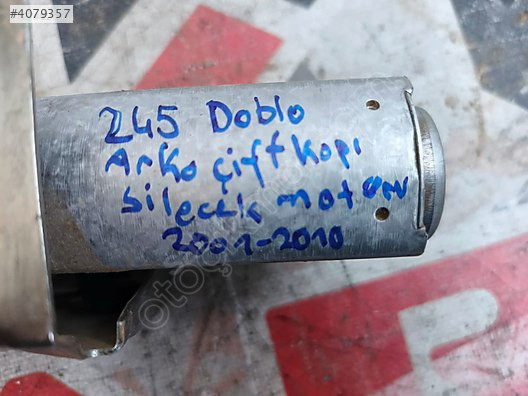 #4079357
245 Doblo
Arka çift kapı
silecek motoru
2001-2010
sahibinden.com